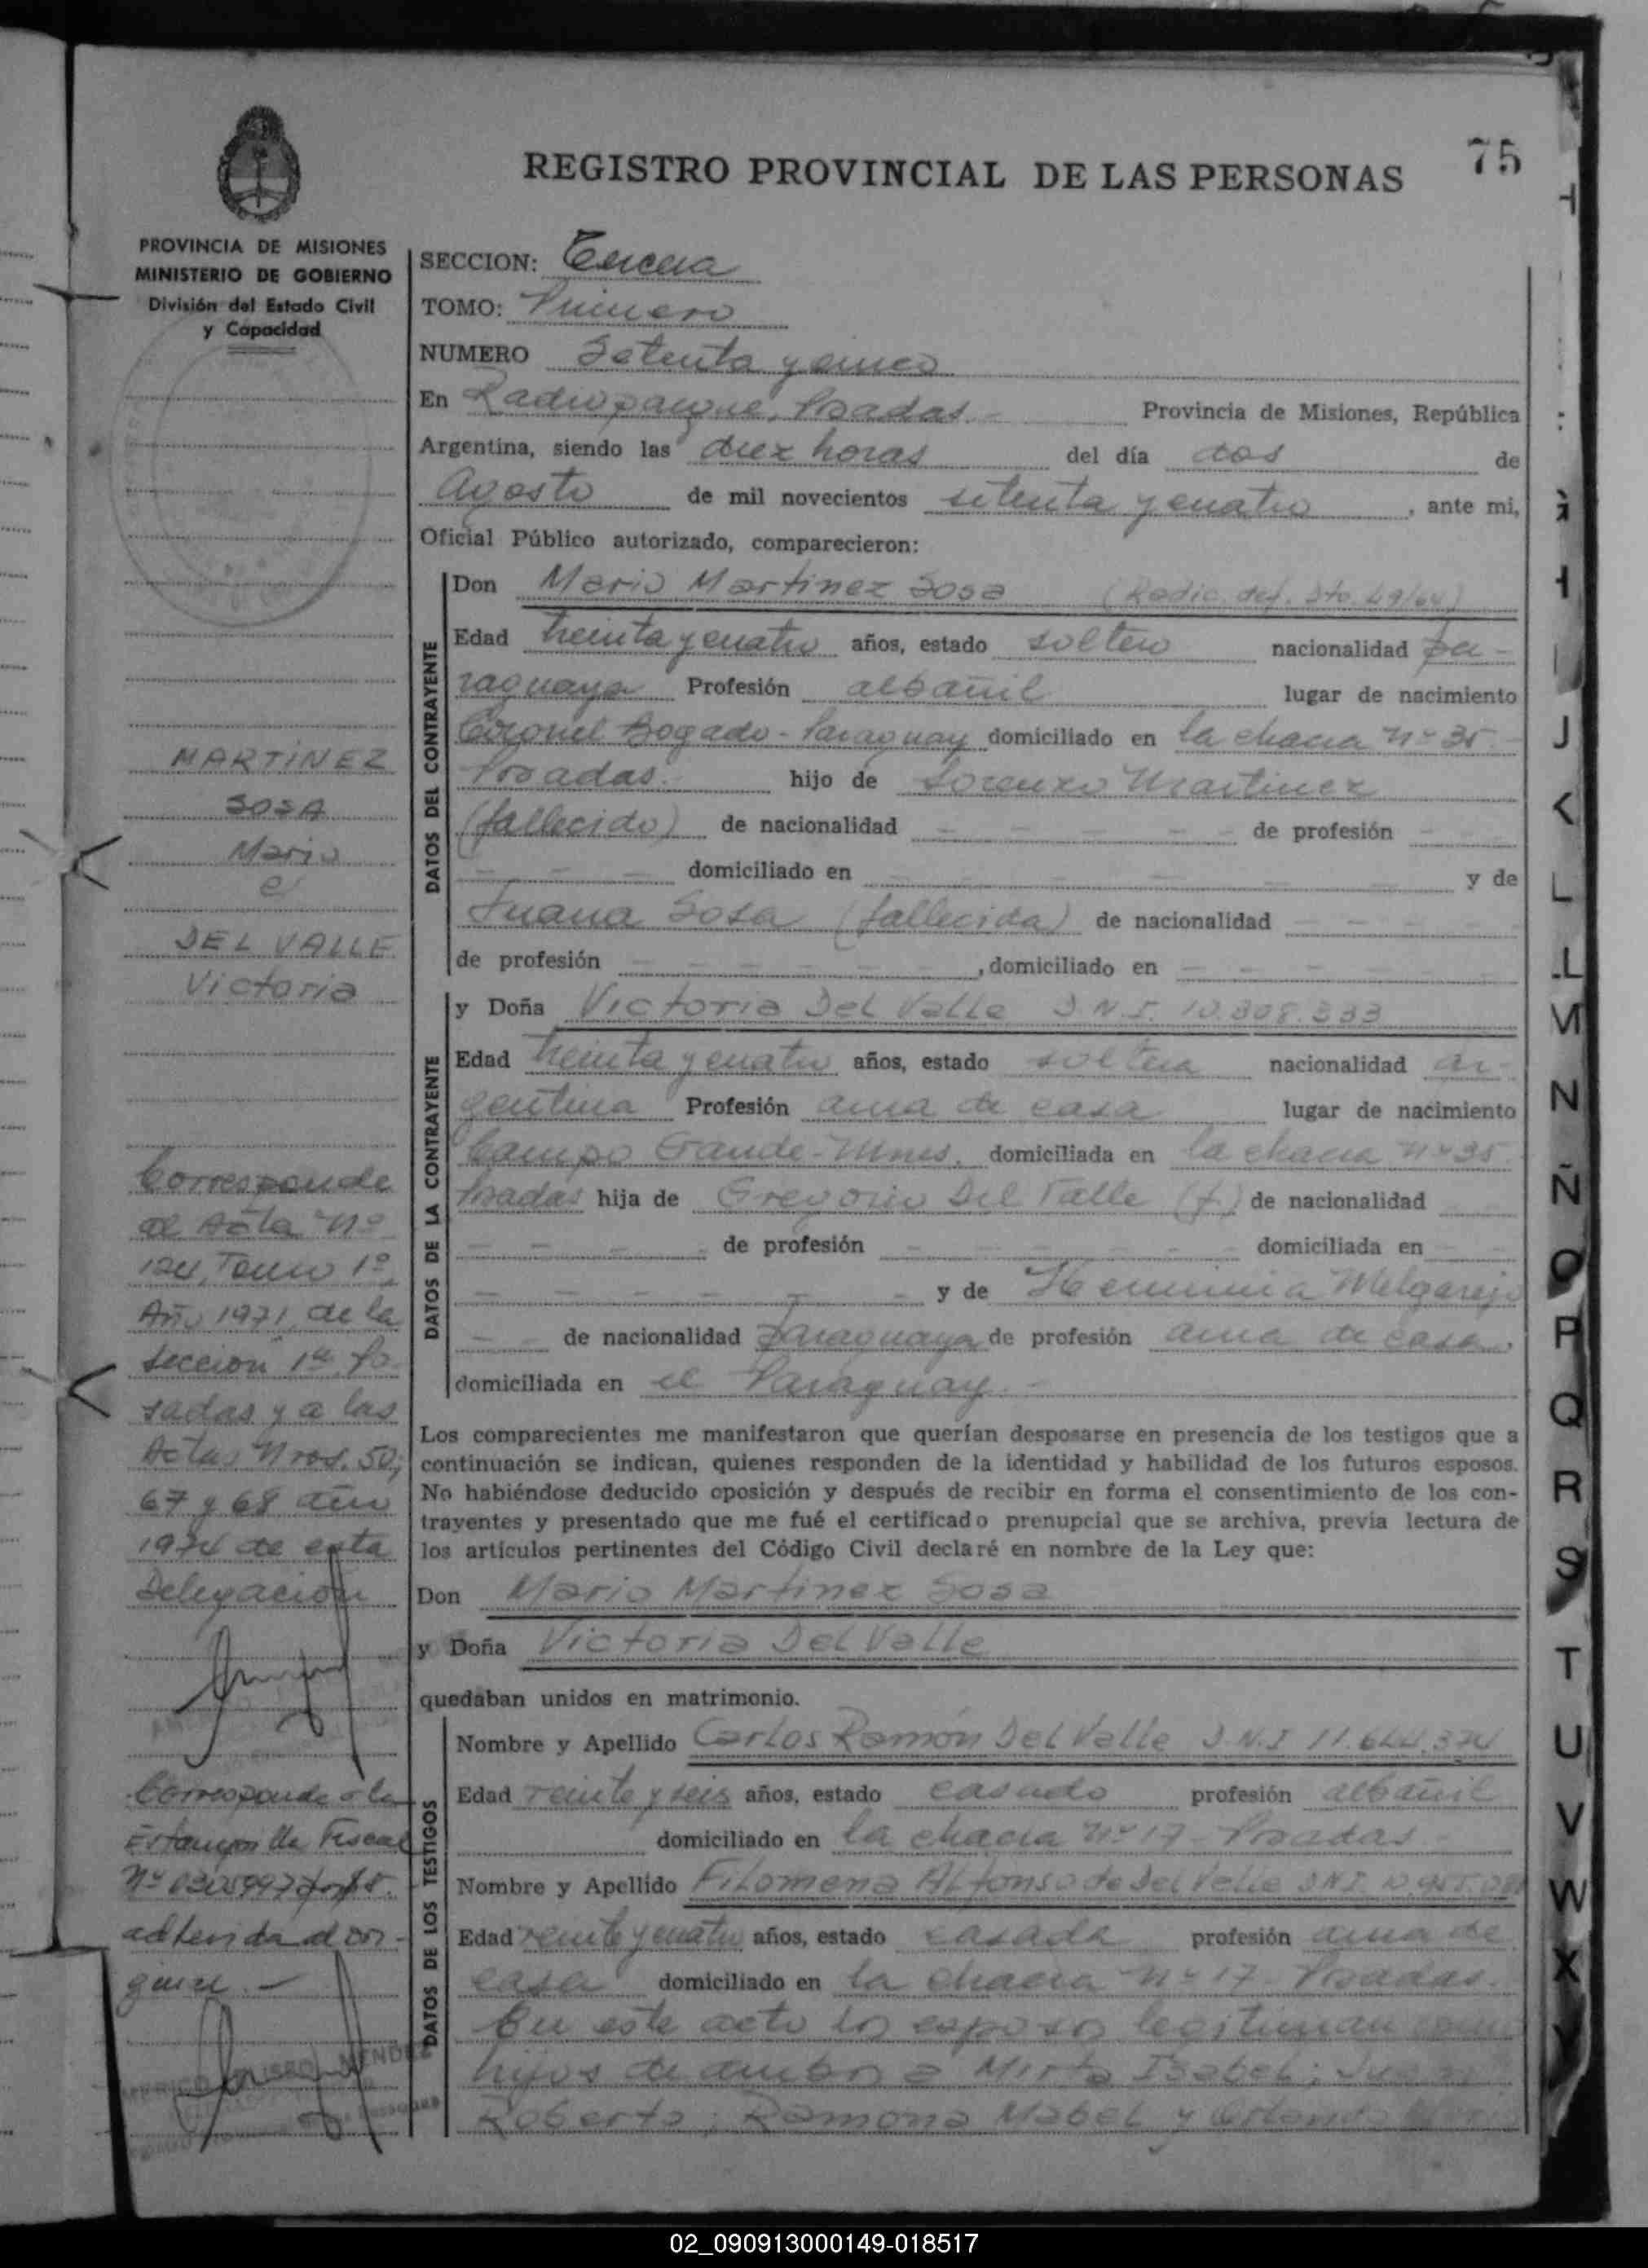 75
REGISTRO PROVINCIAL DE LAS PERSONAS
PROVINCIA DE MISIONES
MINISTERIO DE GOBIERNO
División del Estado Civil
y Capacidad
MARTINEZ
SOSA
Mario
e
DEL VALLE
Victoria
Corresponde
al Acta Nº
124, Tomo 1º,
Año 1971, de la
Sección 1ª Po-
sadas y a las
Actas Nros. 50;
67 y 68 año
1974 de esta
Delegación
Corresponde a la
Estampilla Fiscal
Nº
adherida al ori-
ginal.-
MENDEZ
SECCION: Tercera
TOMO: Primero
NUMERO Setenta y cinco
En Radioparque, Posadas.- Provincia de Misiones, República
Argentina, siendo las diez horas del día dos de
Agosto de mil novecientos setenta y cuatro, ante mi,
Oficial Público autorizado, comparecieron:
DATOS DEL CONTRAYENTE
Don Mario Martinez Sosa (Radic. def. Dto. 49/64)
Edad treinta y cuatro años, estado soltero nacionalidad pa-
raguaya Profesión albañil lugar de nacimiento
Coronel Bogado - Paraguay domiciliado en la chacra nº 35.-
Posadas.- hijo de Lorenzo Martinez
(fallecido) de nacionalidad - - - - - de profesión - -
- - - domiciliado en - - - - - y de
Juana Sosa (fallecida) de nacionalidad - - - -
de profesión - - - - - -, domiciliado en - - - - -
DATOS DE LA CONTRAYENTE
y Doña Victoria Del Valle D.N.I. 10.808.333
Edad treinta y cuatro años, estado soltera nacionalidad ar-
gentina Profesión ama de casa lugar de nacimiento
Campo Grande - Mnes. domiciliada en la chacra nº 35
Posadas hija de Gregorio Del Valle (f) de nacionalidad - -
- - - - de profesión - - - - - domiciliada en - -
- - - - - - y de Herminia Melgarejo
- - de nacionalidad paraguaya de profesión ama de casa,
domiciliada en el Paraguay.-
Los comparecientes me manifestaron que querían desposarse en presencia de los testigos que a
continuación se indican, quienes responden de la identidad y habilidad de los futuros esposos.
No habiéndose deducido oposición y después de recibir en forma el consentimiento de los con-
trayentes y presentado que me fué el certificado prenupcial que se archiva, previa lectura de
los artículos pertinentes del Código Civil declaré en nombre de la Ley que:
Don Mario Martinez Sosa
y Doña Victoria Del Valle
quedaban unidos en matrimonio.
DATOS DE LOS TESTIGOS
Nombre y Apellido Carlos Ramón Del Valle D.N.I 11.644.374
Edad veinte y seis años, estado casado profesión albañil
domiciliado en la chacra nº 17 - Posadas -
Nombre y Apellido Filomena Alfonso de Del Valle D.N.I.
Edad veinte y cuatro años, estado casada profesión ama de
casa domiciliado en la chacra nº 17 - Posadas.
En este acto los esposos legitiman como
hijos de ambos a Mirta Isabel; Juan
Roberto; Ramona Mabel y Orlando
H
I
J
K
L
LL
M
N
Ñ
O
P
Q
R
S
T
U
V
W
X
Y
02_090913000149-018517